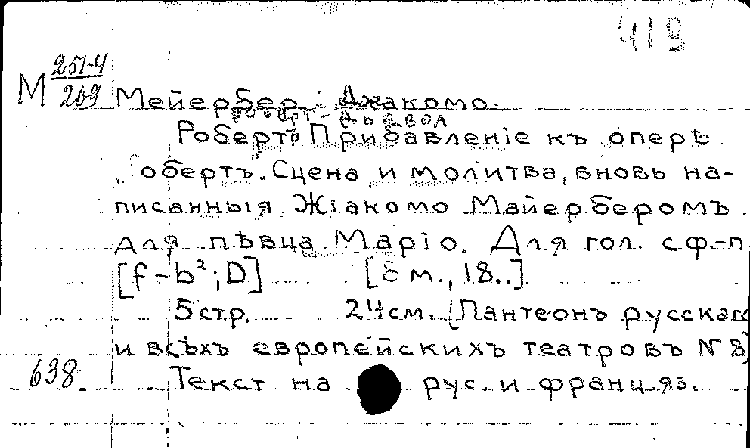 419
М 251-4
269
Мейербер, Джакомо.
Роберт-дьявол
Робертъ Прибавленіе къ оперѣ
"Робертъ". Сцена и молитва, вновь на-
писанныя Жіакомо Майерберомъ
для пѣвца Маріо. Для гол. с ф-п
[f-b²; D] [б м., 18..]
5 стр. 24 см. (Пантеонъ русскаг
и всѣхъ европейскихъ театровъ N 8)
638. Текст на рус. и франц. яз.